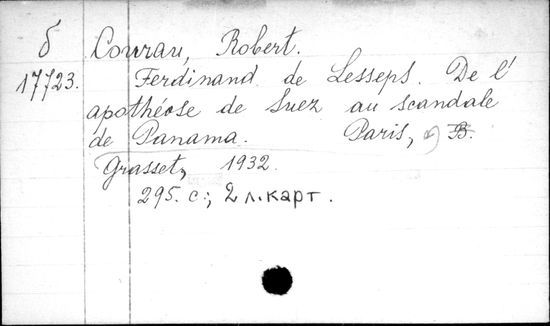 б Courau, Robert.
17723. Ferdinand de Lesseps. De l'
apothéose de Suez au scandale
de Panama. Paris, B.
Grasset, 1932.
295. с.; 2 л. карт.